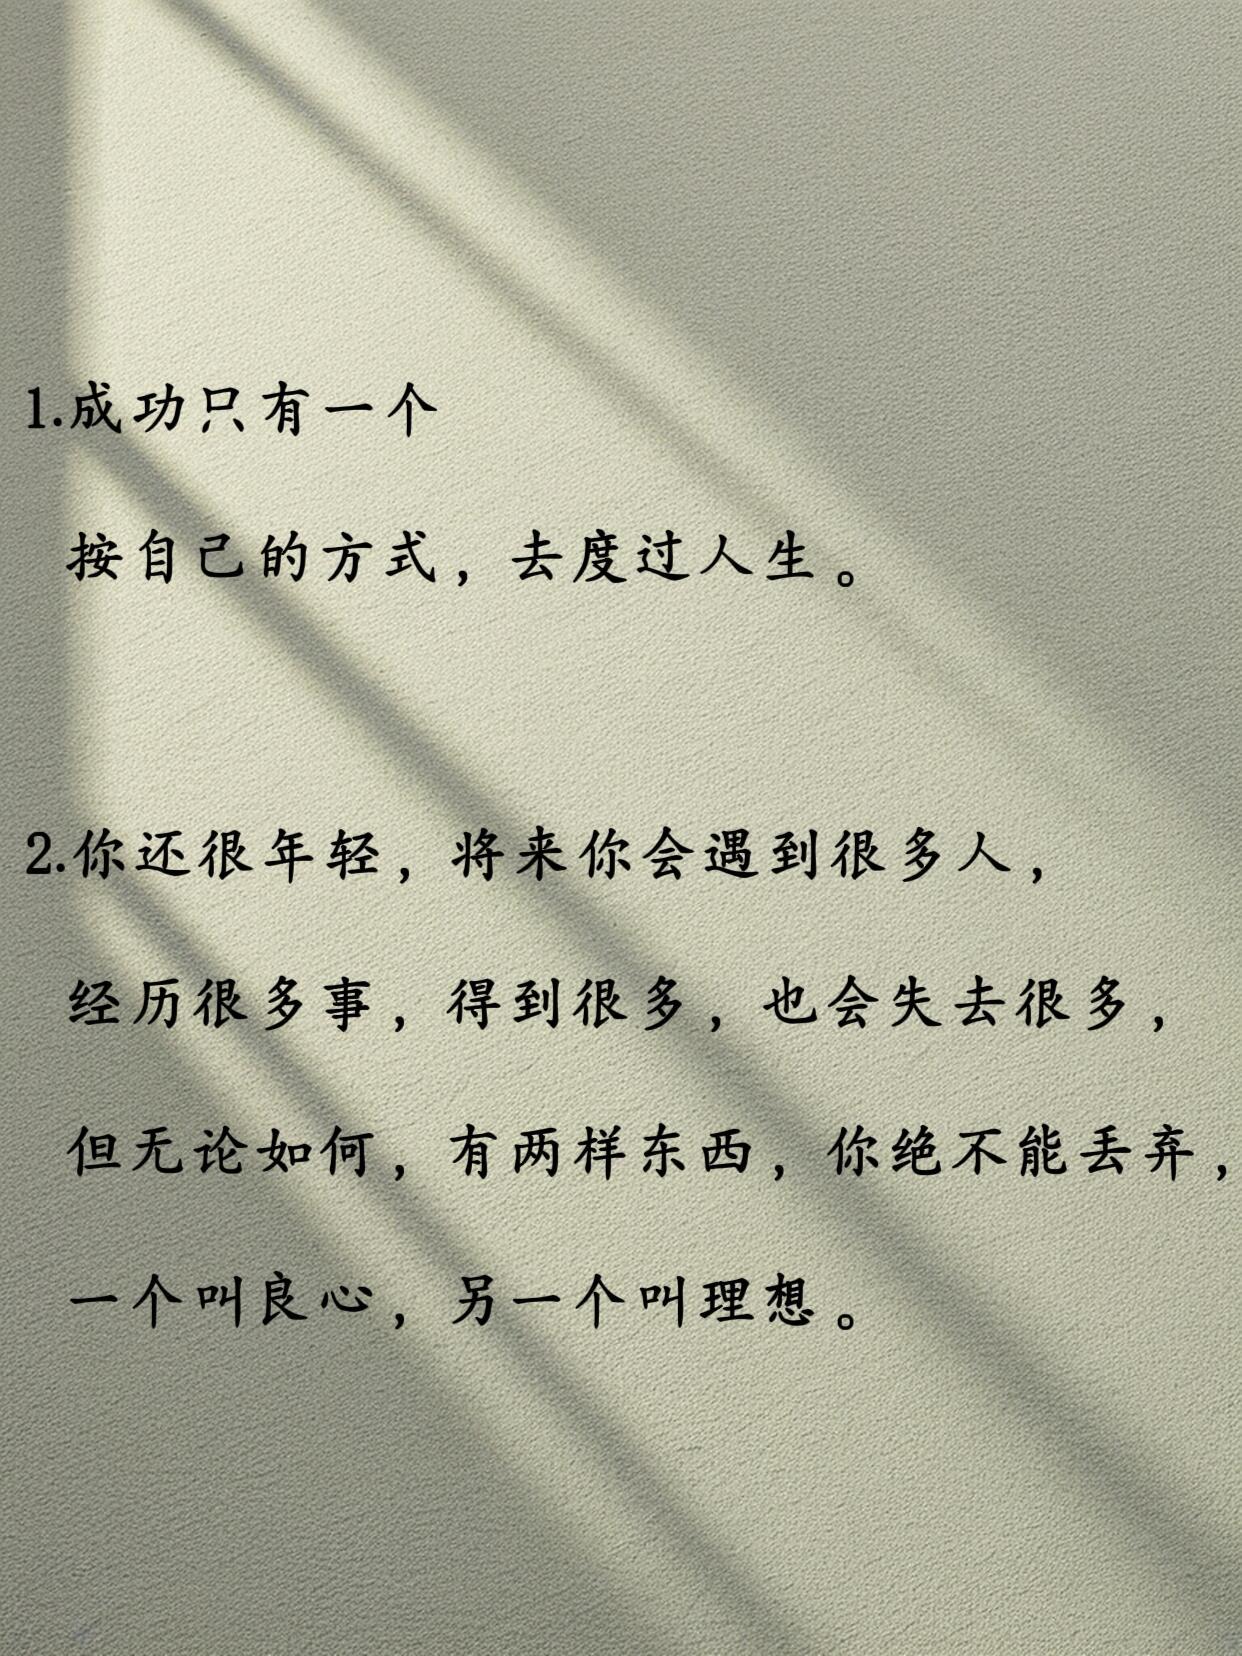 1.成功只有一个
按自己的方式，去度过人生。
2.你还很年轻，将来你会遇到很多人，
经历很多事，得到很多，也会失去很多，
但无论如何，有两样东西，你绝不能丢弃，
一个叫良心，另一个叫理想。